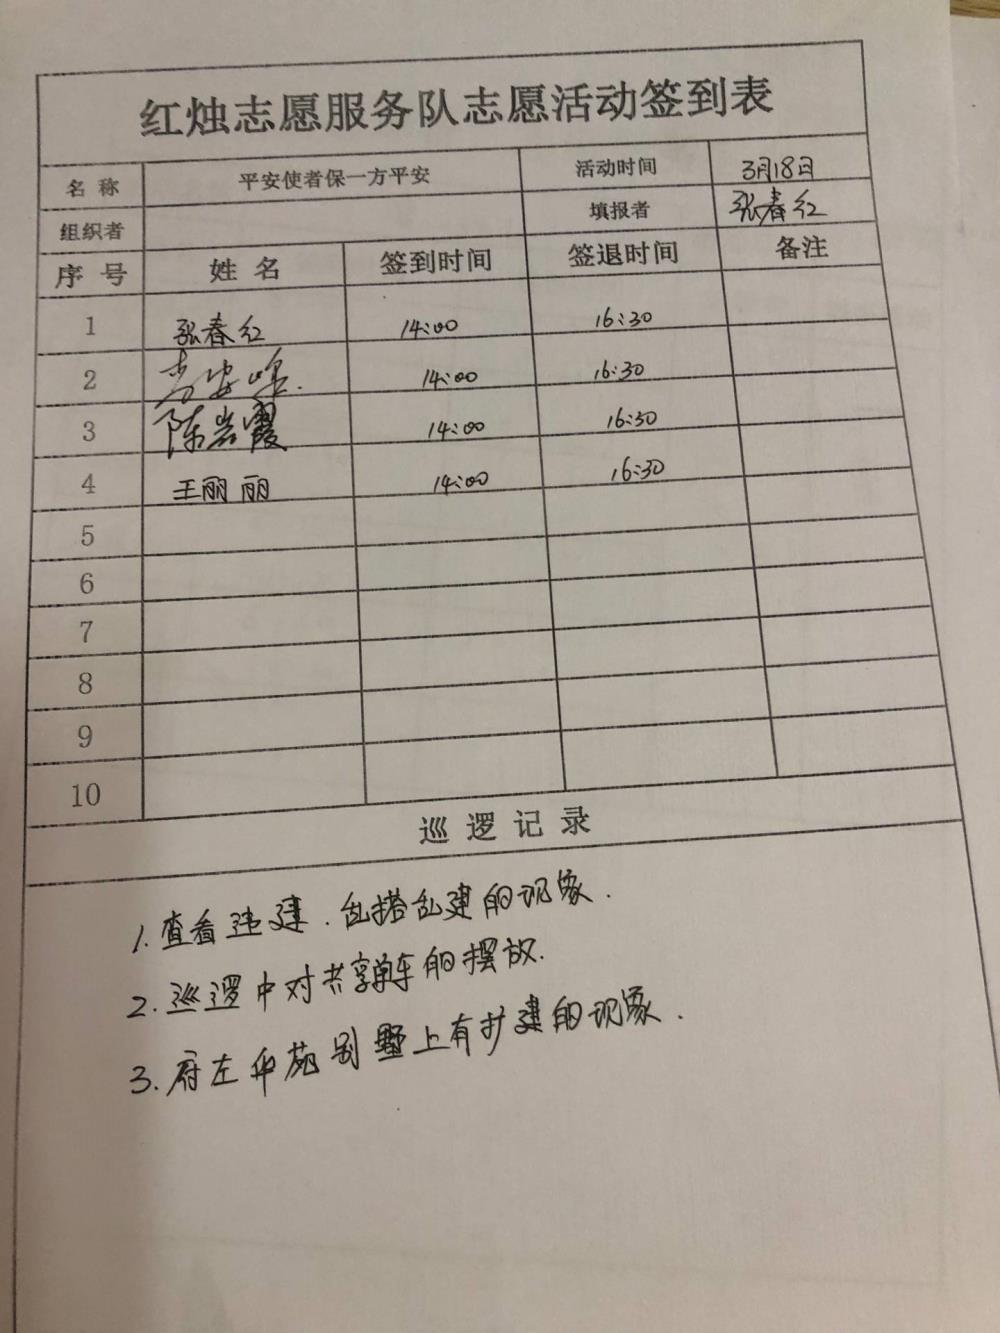 红烛志愿服务队志愿活动签到表
名称 平安使者保一方平安 活动时间 3月18日
组织者 填报者 张春红
序号 姓名 签到时间 签退时间 备注
1 张春红 14:00 16:30
2 14:00 16:30
3 陈岩霞 14:00 16:30
4 王丽丽 14:00 16:30
5
6
7
8
9
10
巡逻记录
1. 查看违建．乱搭乱建的现象．
2. 巡逻中对共享单车的摆放．
3. 府左华苑别墅上有扩建的现象．